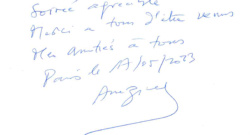 Soirée agréable
Merci à tous d'être venus
Mes amitiés à tous
Paris le 17/05/2033